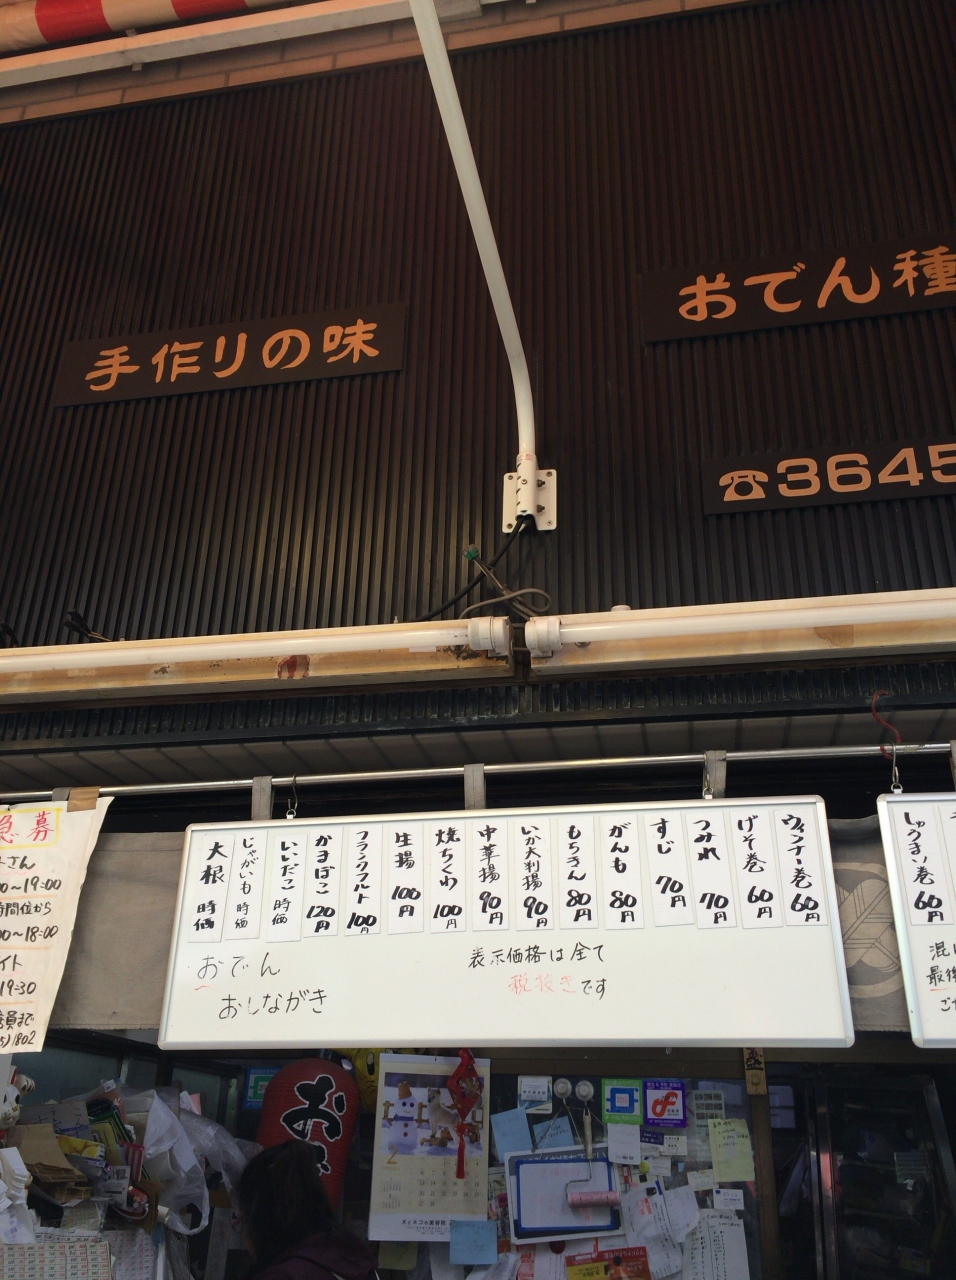 手作りの味
おでん種
☎3645
急募
さん
00~19:00
時間位から
00~18:00
イト
19:30
員まで
1802
ウィンナー巻 60円
げそ巻 60円
つみれ 70円
すじ 70円
がんも 80円
もちきん 80円
いか大判揚 90円
中華揚 90円
焼ちくわ 100円
生揚 100円
フランクフルト 100円
かまぼこ 120円
いいだこ 時価
じゃがいも 時価
大根 時価
おでん
おしながき
表示価格は全て
税抜きです
しゅうまい巻 60円
混
最後
ご
おで
2